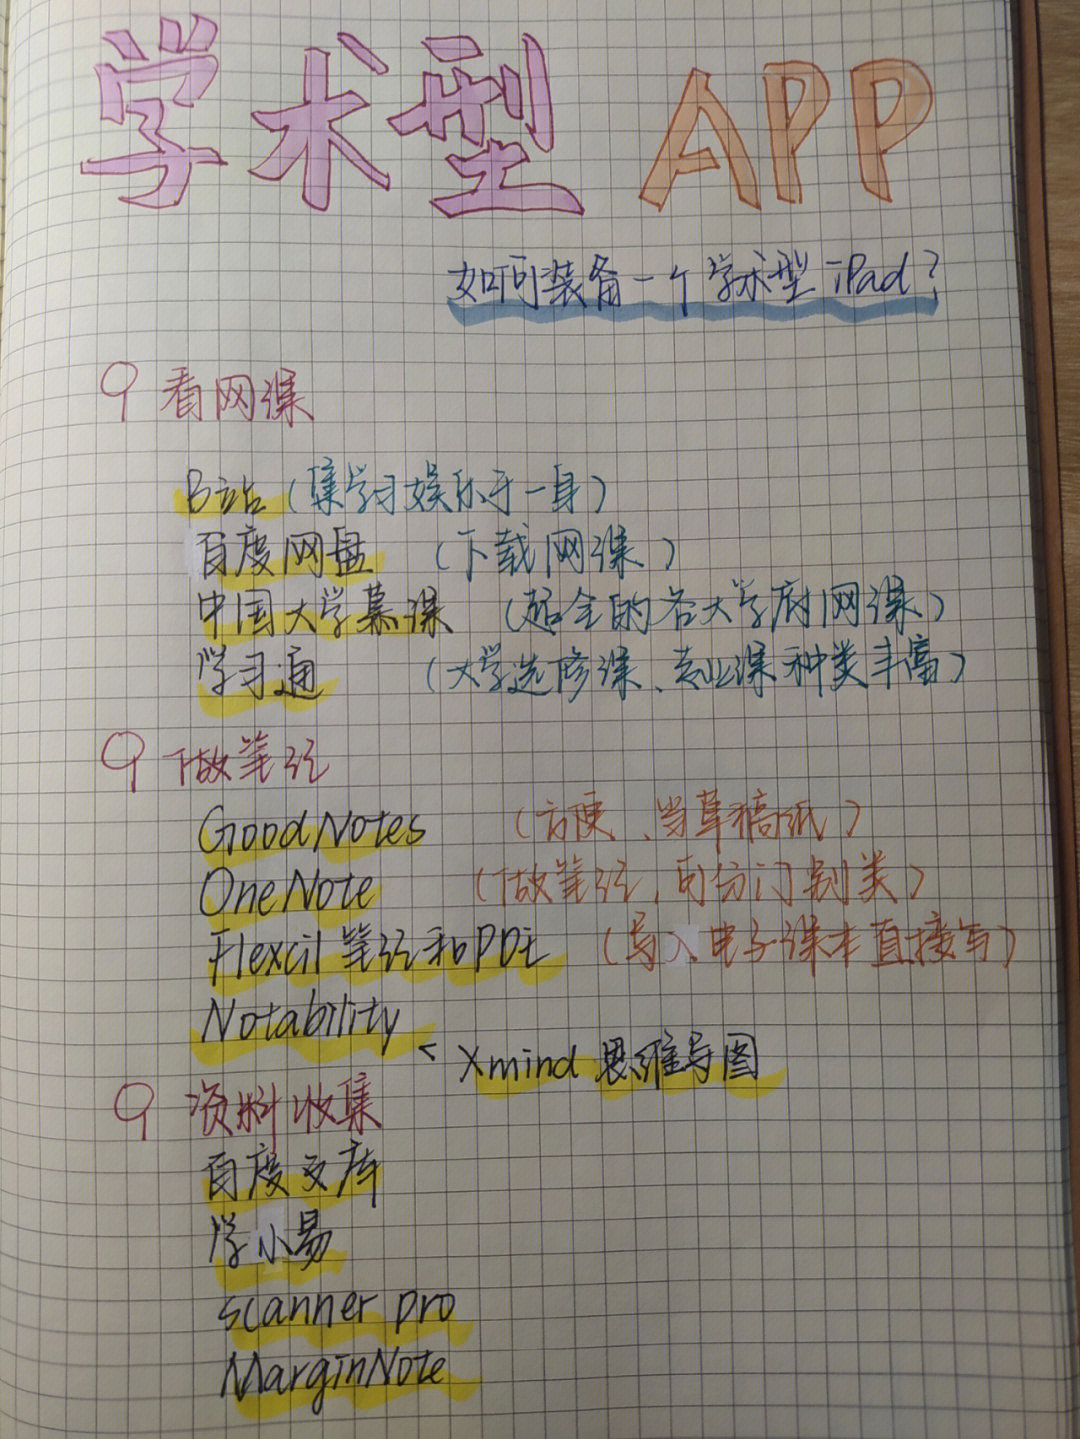 学术型 APP
如何装备一个学术型 iPad?
看网课
B站（集学习娱乐于一身）
百度网盘 （下载网课）
中国大学慕课 （超全的各大学府网课）
学习通 （大学选修课、专业课种类丰富）
做笔记
GoodNotes （方便、当草稿纸）
OneNote （做笔记，可分门别类）
Flexcil 笔记和PDF （导入电子课本直接写）
Notability
< Xmind 思维导图
资料收集
百度文库
学小易
scanner pro
MarginNote